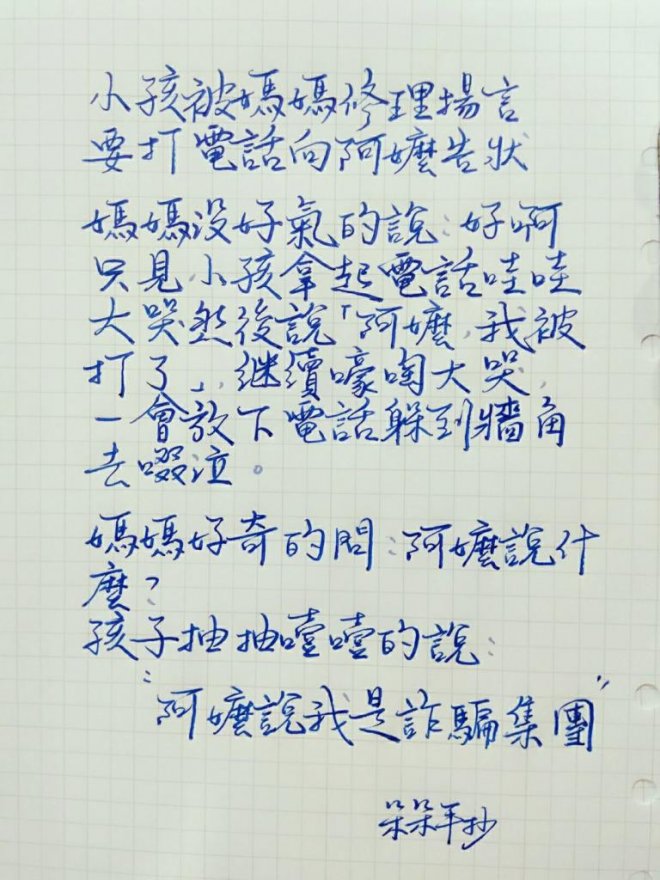 小孩被媽媽修理揚言
要打電話向阿嬤告狀
媽媽没好氣的說:好啊
只見小孩拿起電話哇哇
大哭然後說「阿嬤,我被
打了」,継續嚎啕大哭,
一會放下電話躲到牆角
去啜泣。
媽媽好奇的問:阿嬤說什
麼?
孩子抽抽噎噎的說:
"阿嬤說我是詐騙集團"
朵朵手抄